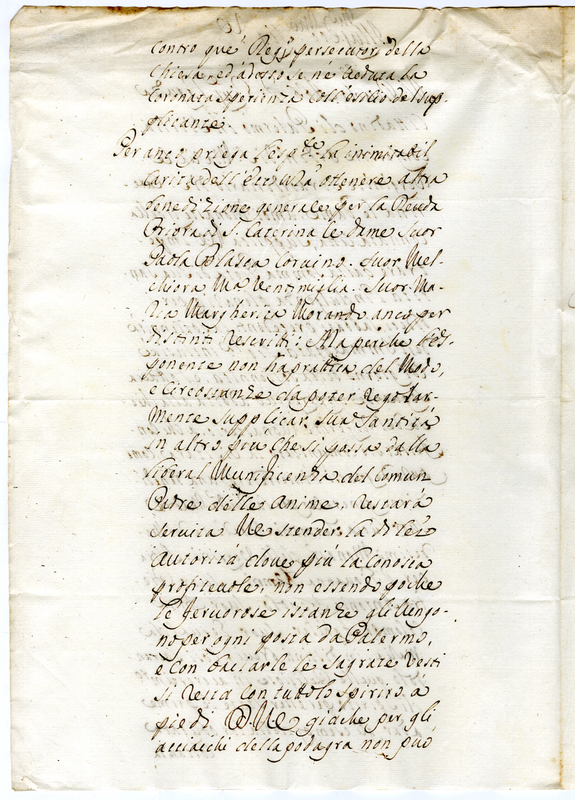 contro que' Regij persecutori della
Chiesa, ed adosso se n'è veduta la
coronata sperienza coll'esilio del sup-
plicante
Per anco priega l'esp.te la inimitabil
carità dell' ottenere altra
benedizione generale per la Reũda
Priora di S. Caterina le dame Suor
Paola Blasca Corvino. Suor Mel-
chiora M.a Ventimiglia. Suor Ma-
ria Margherita Morando anco per
distinti rescritti: Ma perche l'es-
ponente non hà prattica del Modo,
e circostanze da poter regolar-
mente supplicar sua Santità
in altro piu che si possa dalla
liberal Munificenza del Comun
Padre delle Anime, restarà
servita VE stender la di lei
autorità dove più la conoscia
profitevole, non essendo poche
le fervorose istanze gli vengo-
no per ogni posta da Palermo,
e con baciarle le sagrate vesti
si resta con tutto lo spirito a
piedi D. VE giache per gli
acciacchi della podagra non può